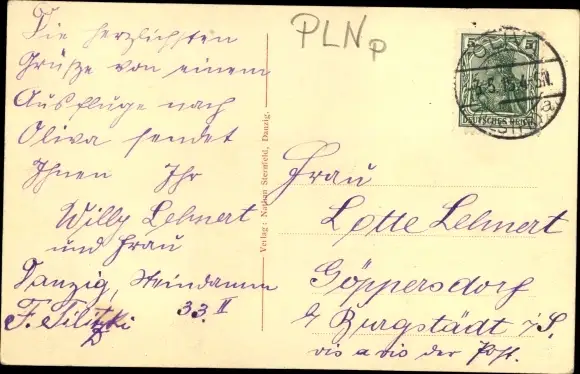 Die herzlichsten
Grüße von einem
Ausfluge nach
Oliva sendet
Ihnen Ihr
Willy Lehnert
und Frau
Danzig, Steindamm
33 II
F. Tilitzki
PLNp
Verlag: Nathan Sternfeld, Danzig.
5 5
DEUTSCHES REICH
OLIVA
Frau
Lotte Lehnert
Göppersdorf
b/ Burgstädt i/S.
vis a vis der Post.